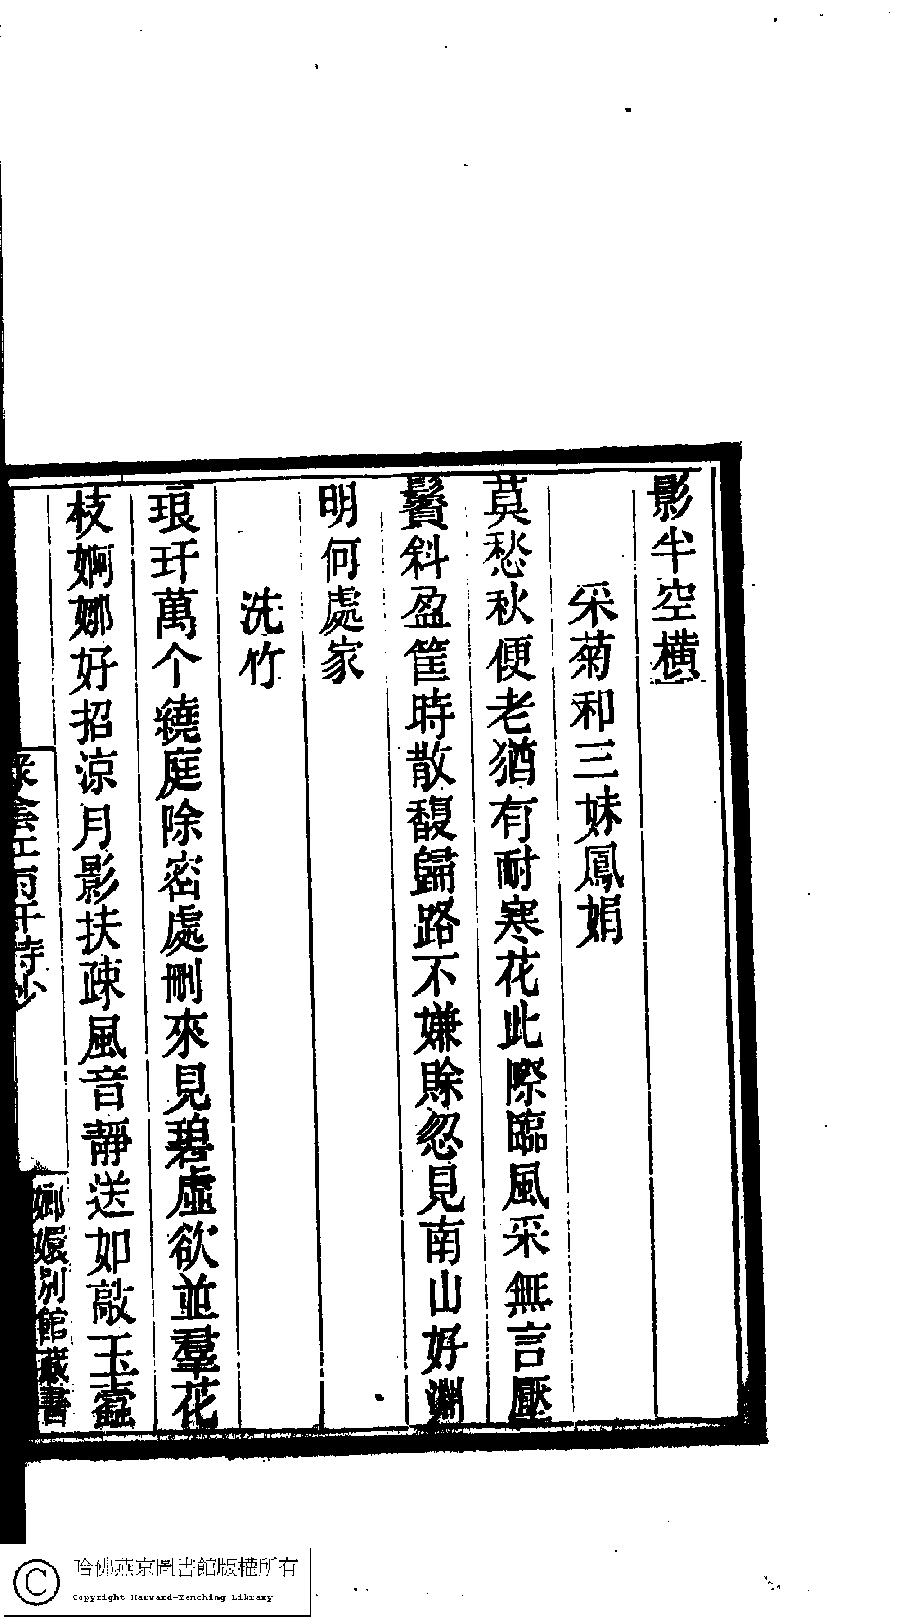 影半空橫
采菊和三妹鳳娟
莫愁秋便老猶有耐寒花此際臨風采無言壓
鬢斜盈筐時散馥歸路不嫌賒忽見南山好淵
明何處家
洗竹
琅玕萬个繞庭除密處刪來見碧虛欲並羣花
枝婀娜好招涼月影扶疎風音靜送如敲玉壼
軒詩鈔
嫏嬛別館藏書
哈佛燕京圖書館版權所有
Copyright Harvard-Yenching Library